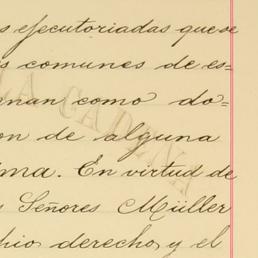 s ejecutoriadas que se
s comunes de es=
rnan como do=
on de alguna
ma. En virtud de
s Señores Müller
hio derecho, y el
LA CADENA